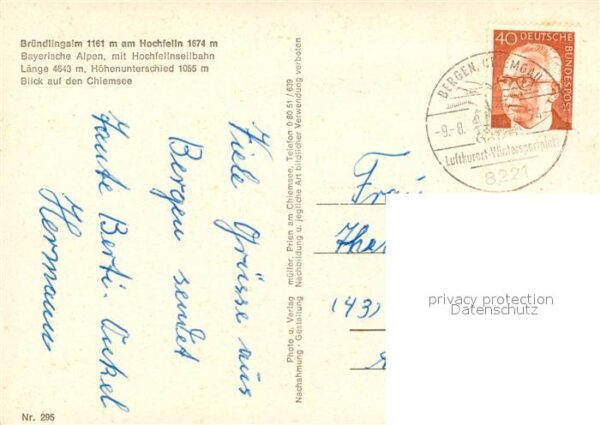 Bründlingalm 1161 m am Hochfelln 1674 m
Bayerische Alpen, mit Hochfellnseilbahn
Länge 4643 m, Höhenunterschied 1055 m
Blick auf den Chiemsee
Viele Grüsse aus
Bergen sendet
Tante Berti. Onkel
Hermann
Nr. 295
Photo u. Verlag müller, Prien am Chiemsee, Telefon 0 80 51 / 639
Nachahmung - Gestaltung Nachbildung u. jegliche Art bildlicher Verwendung verboten
40 DEUTSCHE BUNDESPOST
BERGEN, CHIEMGAU
-9.-8.
Luftkurort-Wintersportplatz
8221
Frau
(43)
privacy protection
Datenschutz